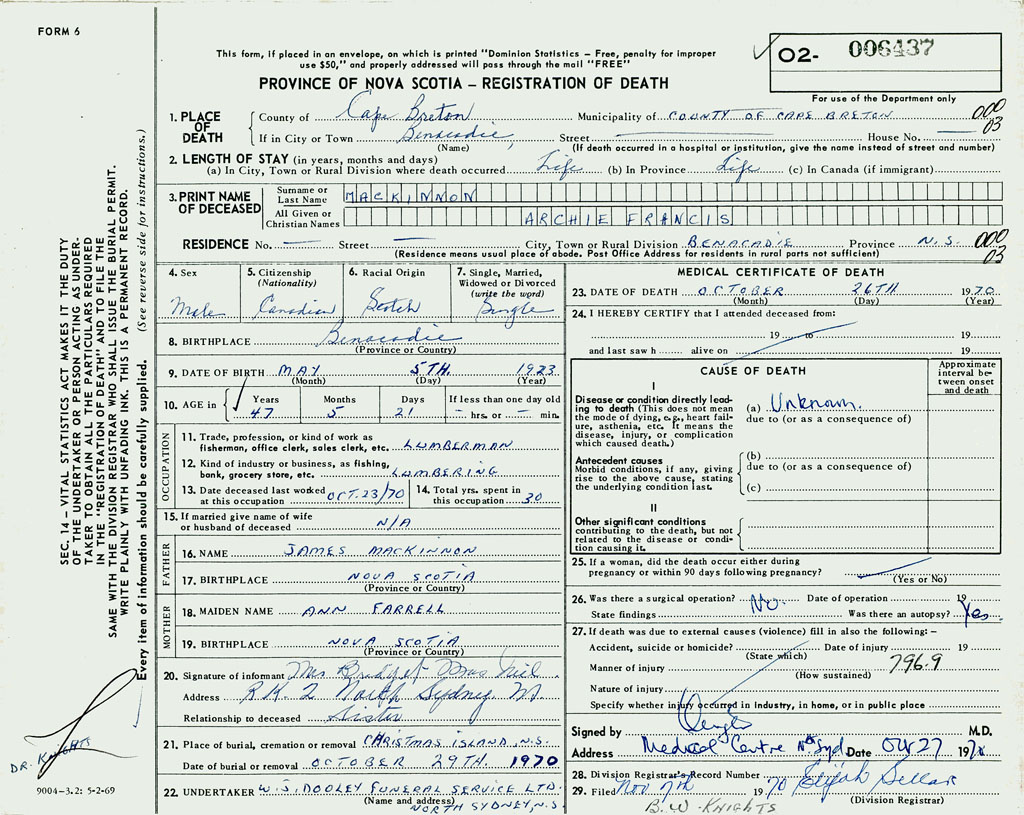 FORM 6
This form, if placed in an envelope, on which is printed "Dominion Statistics – Free, penalty for improper
use $50," and properly addressed will pass through the mail "FREE"
PROVINCE OF NOVA SCOTIA – REGISTRATION OF DEATH
02- 006437
For use of the Department only
SEC. 14 – VITAL STATISTICS ACT MAKES IT THE DUTY
OF THE UNDERTAKER OR PERSON ACTING AS UNDER-
TAKER TO OBTAIN ALL THE PARTICULARS REQUIRED
IN THE "REGISTRATION OF DEATH" AND TO FILE THE
SAME WITH THE DIVISION REGISTRAR WHO SHALL ISSUE THE BURIAL PERMIT.
WRITE PLAINLY WITH UNFADING INK. THIS IS A PERMANENT RECORD.
Every item of information should be carefully supplied. (See reverse side for instructions.)
DR. KNIGHTS
9004-3.2: 5-2-69
1. PLACE OF DEATH County of Cape Breton Municipality of COUNTY OF CAPE BRETON 000
If in City or Town Benacadie Street House No. 03
(Name) (If death occurred in a hospital or institution, give the name instead of street and number)
2. LENGTH OF STAY (in years, months and days)
(a) In City, Town or Rural Division where death occurred Life (b) In Province Life (c) In Canada (if immigrant)
3. PRINT NAME OF DECEASED Surname or Last Name MACKINNON
All Given or Christian Names ARCHIE FRANCIS
RESIDENCE No. Street City, Town or Rural Division BENACADIE Province N.S. 000
(Residence means usual place of abode. Post Office Address for residents in rural parts not sufficient) 03
4. Sex Male
5. Citizenship (Nationality) Canadian
6. Racial Origin Scotch
7. Single, Married, Widowed or Divorced (write the word) Single
8. BIRTHPLACE Benacadie
(Province or Country)
9. DATE OF BIRTH MAY 5TH. 1923
(Month) (Day) (Year)
10. AGE in Years Months Days If less than one day old
47 5 21 hrs. or min.
OCCUPATION
11. Trade, profession, or kind of work as
fisherman, office clerk, sales clerk, etc. LUMBERMAN
12. Kind of industry or business, as fishing,
bank, grocery store, etc. LUMBERING
13. Date deceased last worked at this occupation OCT. 23/70
14. Total yrs. spent in this occupation 30
15. If married give name of wife
or husband of deceased N/A
FATHER
16. NAME JAMES MACKINNON
17. BIRTHPLACE NOVA SCOTIA
(Province or Country)
MOTHER
18. MAIDEN NAME ANN FARRELL
19. BIRTHPLACE NOVA SCOTIA
(Province or Country)
20. Signature of informant Mrs Bridget Mac Neil
Address R.R. 2 North Sydney
Relationship to deceased Sister
21. Place of burial, cremation or removal CHRISTMAS ISLAND, N.S.
Date of burial or removal OCTOBER 29TH. 1970
22. UNDERTAKER W.J. DOOLEY FUNERAL SERVICE LTD.
(Name and address) NORTH SYDNEY, N.S.
MEDICAL CERTIFICATE OF DEATH
23. DATE OF DEATH OCTOBER 26TH 1970
(Month) (Day) (Year)
24. I HEREBY CERTIFY that I attended deceased from:
19 to 19
and last saw h alive on 19
CAUSE OF DEATH
Approximate interval between onset and death
I
Disease or condition directly leading to death (This does not mean the mode of dying, e.g., heart failure, asthenia, etc. It means the disease, injury, or complication which caused death.)
(a) Unknown.
due to (or as a consequence of)
Antecedent causes
Morbid conditions, if any, giving rise to the above cause, stating the underlying condition last.
(b)
due to (or as a consequence of)
(c)
II
Other significant conditions
contributing to the death, but not related to the disease or condition causing it.
25. If a woman, did the death occur either during
pregnancy or within 90 days following pregnancy?
(Yes or No)
26. Was there a surgical operation? No. Date of operation 19
State findings Was there an autopsy? Yes
27. If death was due to external causes (violence) fill in also the following: –
Accident, suicide or homicide? Date of injury 19
(State which)
Manner of injury 796.9
(How sustained)
Nature of injury
Specify whether injury occurred in industry, in home, or in public place
Signed by M.D.
Address Medical Centre Nth Syd Date Oct 27 1970
28. Division Registrar's Record Number
29. Filed Nov 7th 1970 Elijah Sellar
(Division Registrar)
B. W. KNIGHTS